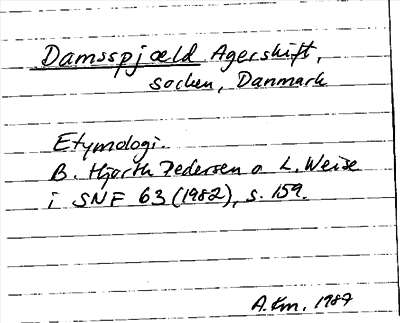 Damsspjæld Agerskift,
socken, Danmark
Etymologi.
B. Hjorth Pedersen o L. Weise
i SNF 63 (1982), s. 159.
A. Em. 1987